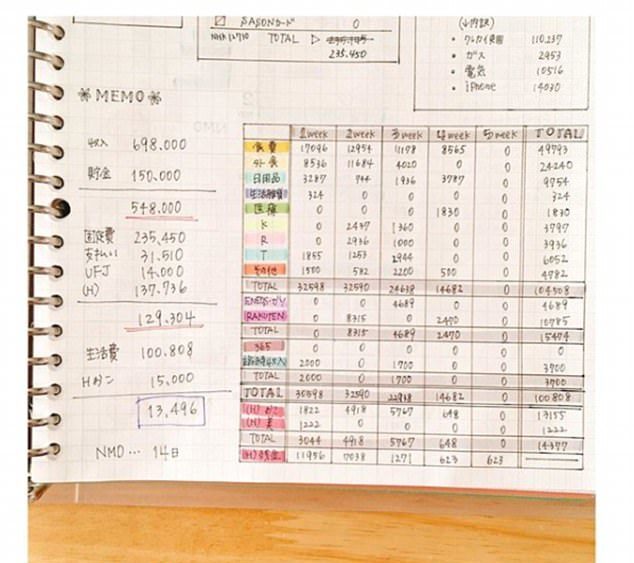 SAISONカード 0
TOTAL ▷ 235.450
(↓内訳)
110.237
・ガス 2953
・電気 10516
・iPhone 14030
※MEMO※
収入 698.000
貯金 150.000
548.000
固定費 235,450
支払い 31.510
UFJ 14.000
(H) 137.736
129.304
生活費 100.808
Hおこ 15,000
13,496
NMD… 14日
1week 2week 3week 4week 5week TOTAL
食費 17096 12954 11178 8565 0 49793
外食 8536 11684 4020 0 0 24240
日用品 3287 744 1936 3787 0 9754
324 0 0 0 0 324
医療 0 0 0 1830 0 1830
K 0 2437 1360 0 0 3797
R 0 2936 1000 0 0 3936
T 1855 1253 2944 0 0 6052
その他 1500 582 2200 500 0 4782
TOTAL 32598 32590 24638 14682 0 104508
ENEOS 0 0 4689 0 0 4689
RAKUTEN 0 8315 0 2470 0 10785
TOTAL 0 8315 4689 2470 0 15474
365 0 0 0 0 0 0
2000 0 1700 0 0 3700
TOTAL 2000 0 1700 0 0 3700
TOTAL 30598 32590 22938 14682 0 100808
(H) 1822 4918 5767 648 0 13155
(H) 1222 0 0 0 0 1222
TOTAL 3044 4918 5767 648 0 14377
(H)残金 11956 7038 1271 623 623